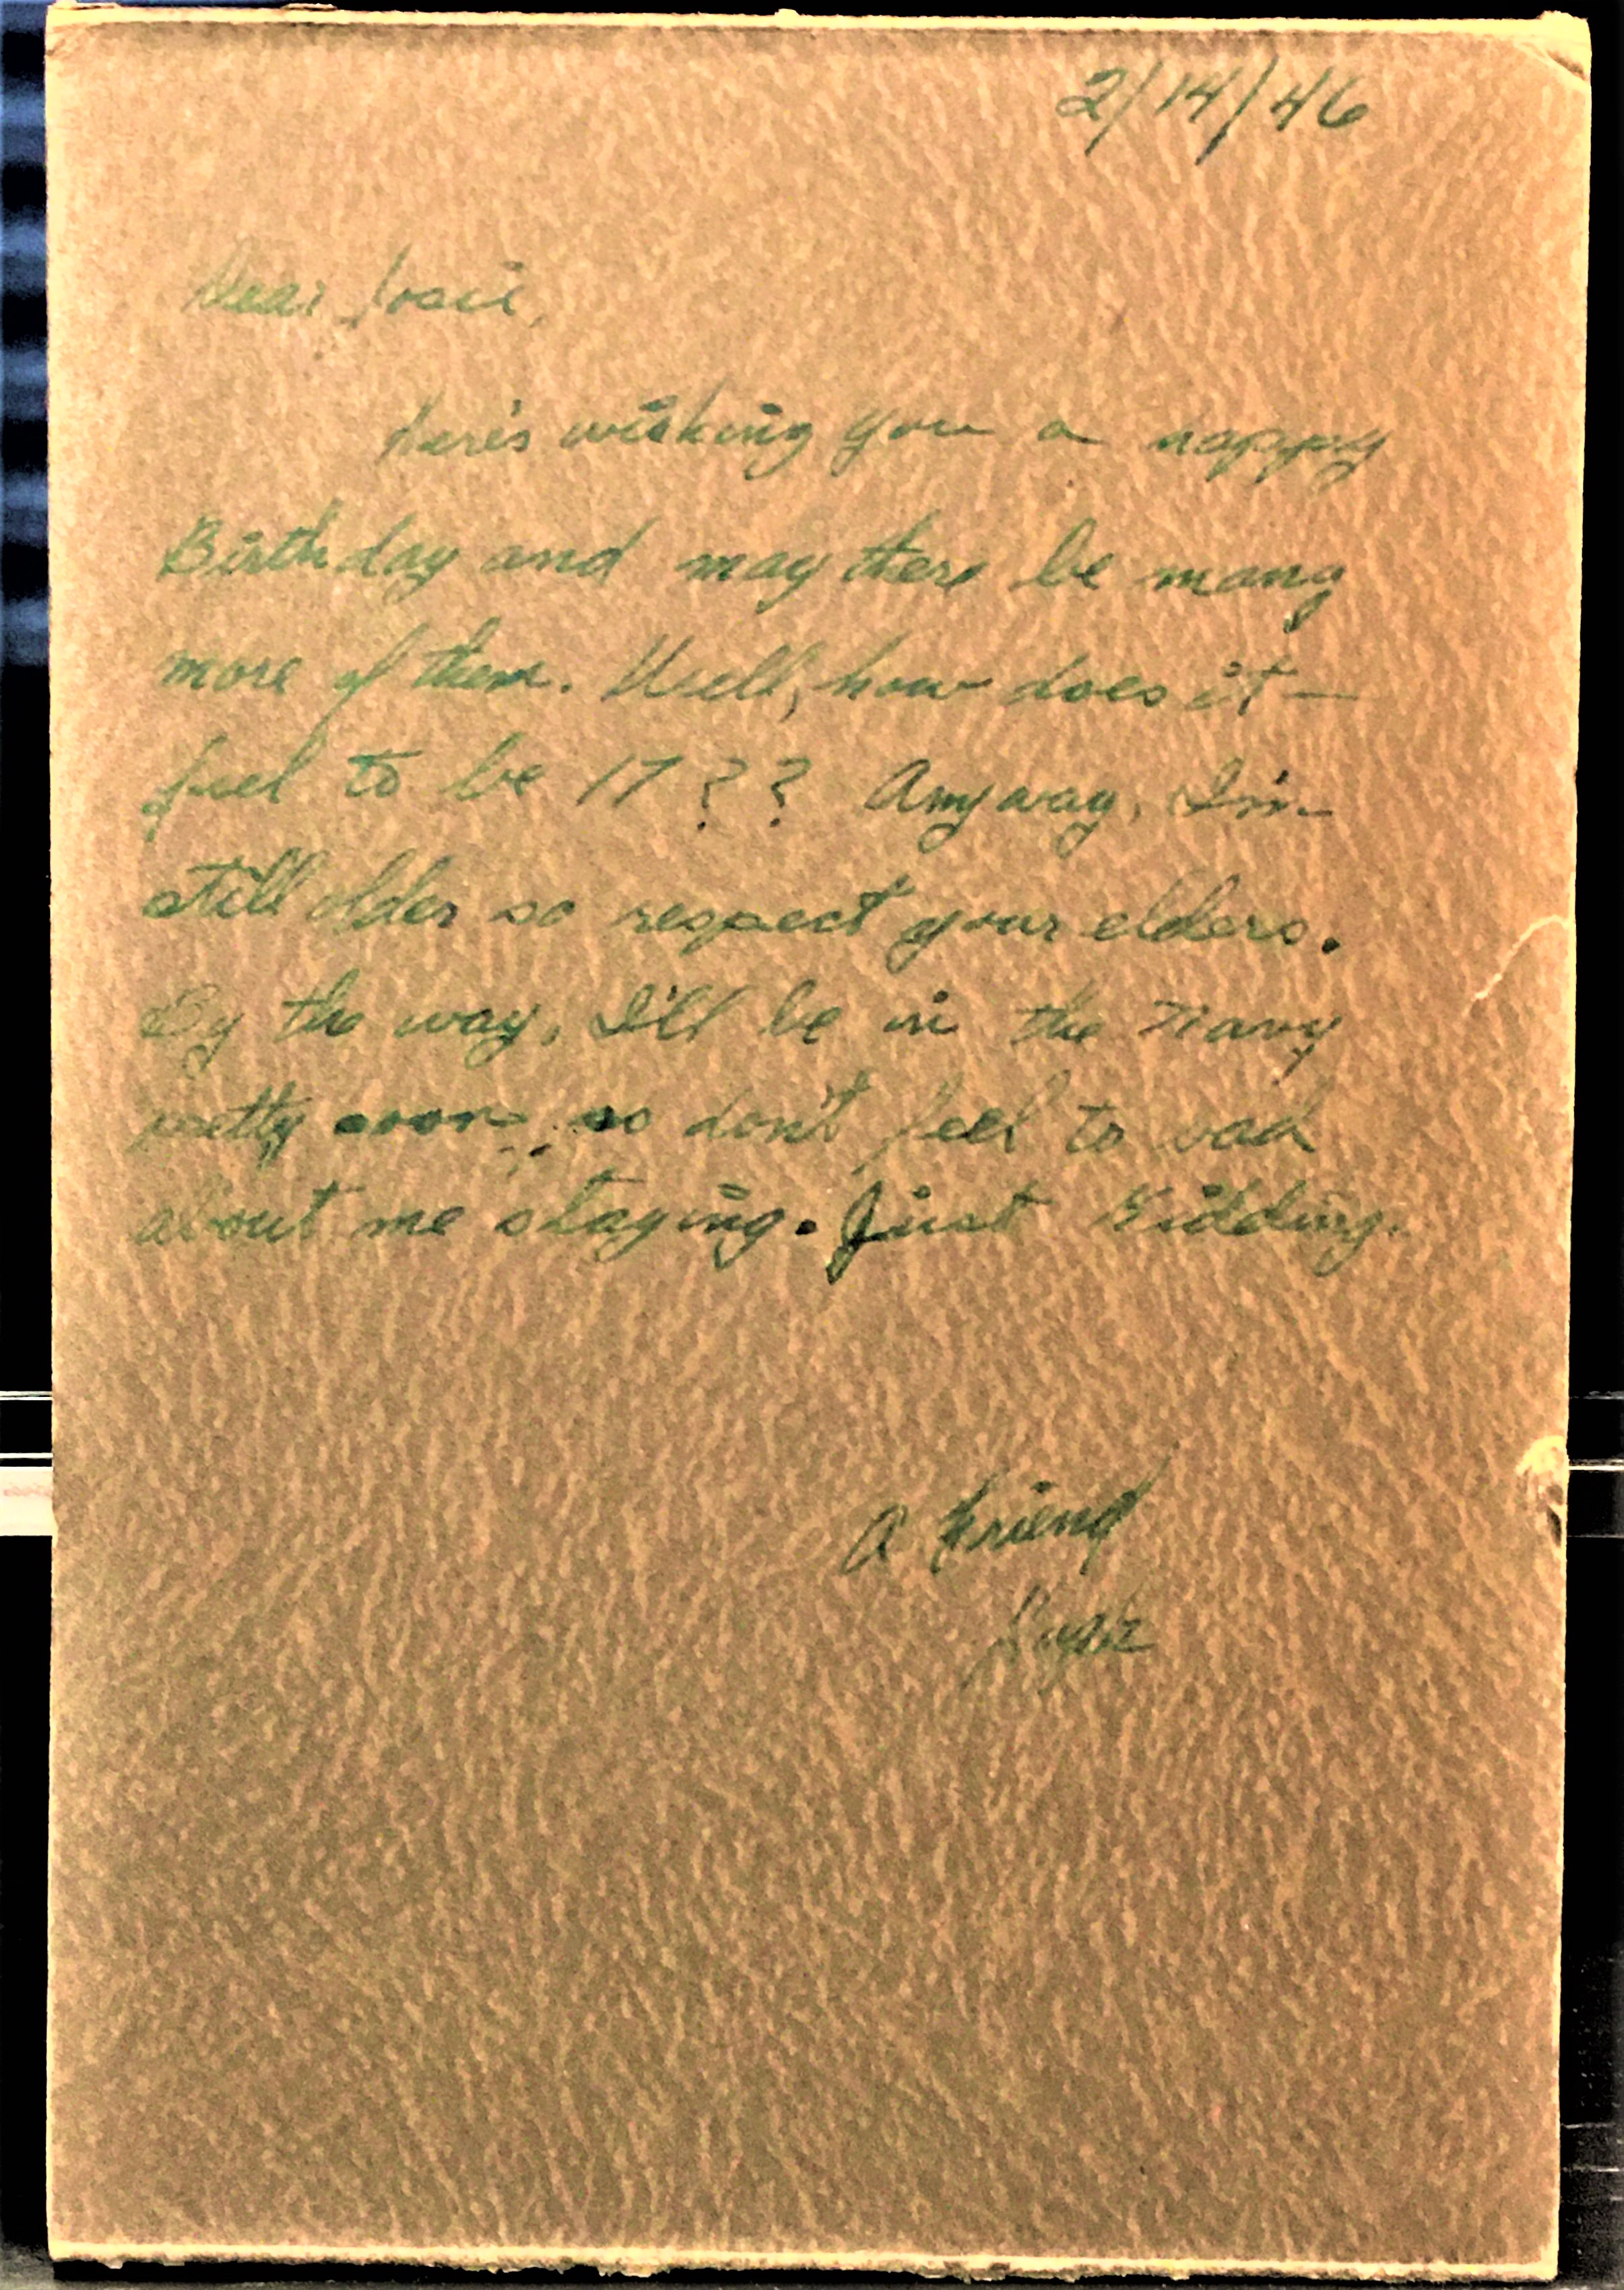 2/14/46
Dear Josie,
Here's wishing you a happy
Birthday and may there be many
more of them. Well, how does it —
feel to be 17?? Anyway, I'm
still older so respect your elders.
By the way, I'll be in the Navy
pretty soon, so don't feel to sad
about me staying. Just Kidding.
A Friend